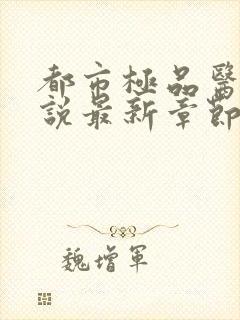 都市極品醫
說最新章節
魏增軍